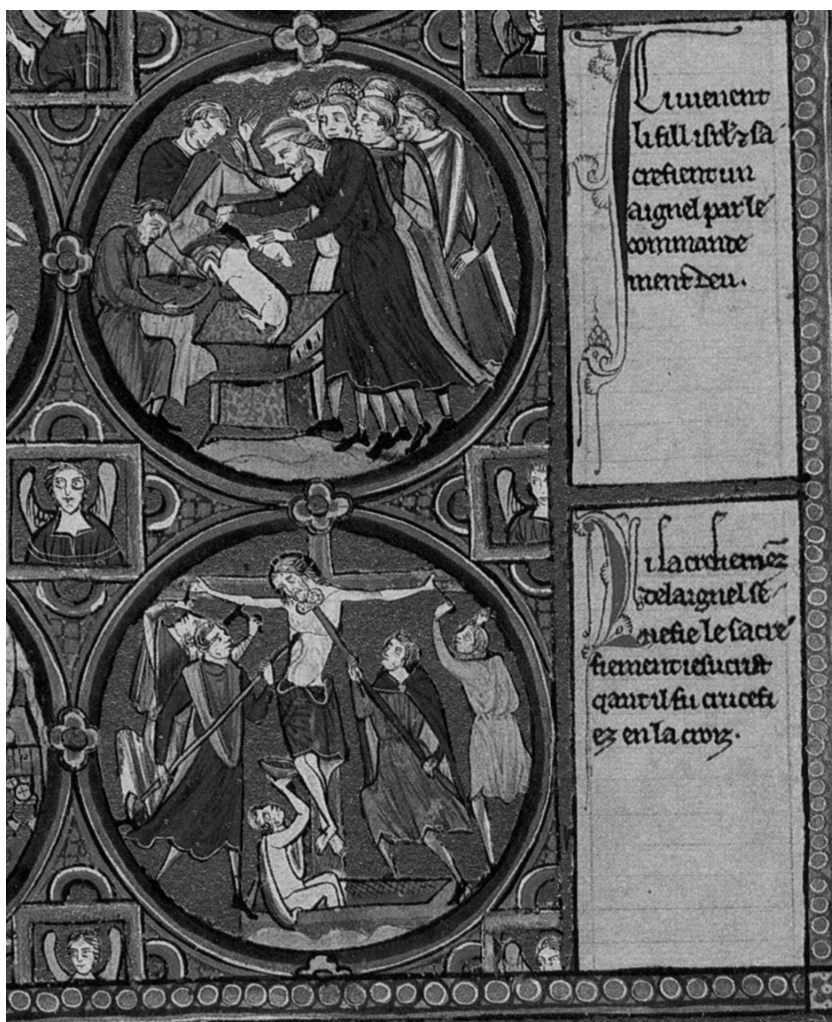 Ici vienent
li fill isrl' ⁊ sa
crefient un
aignel par le
commande
ment deu.
Li sacrefiemēz
del aignel se
nefie le sacre
fiement iesucrist
qant il fu crucefi
ez en la croiz.